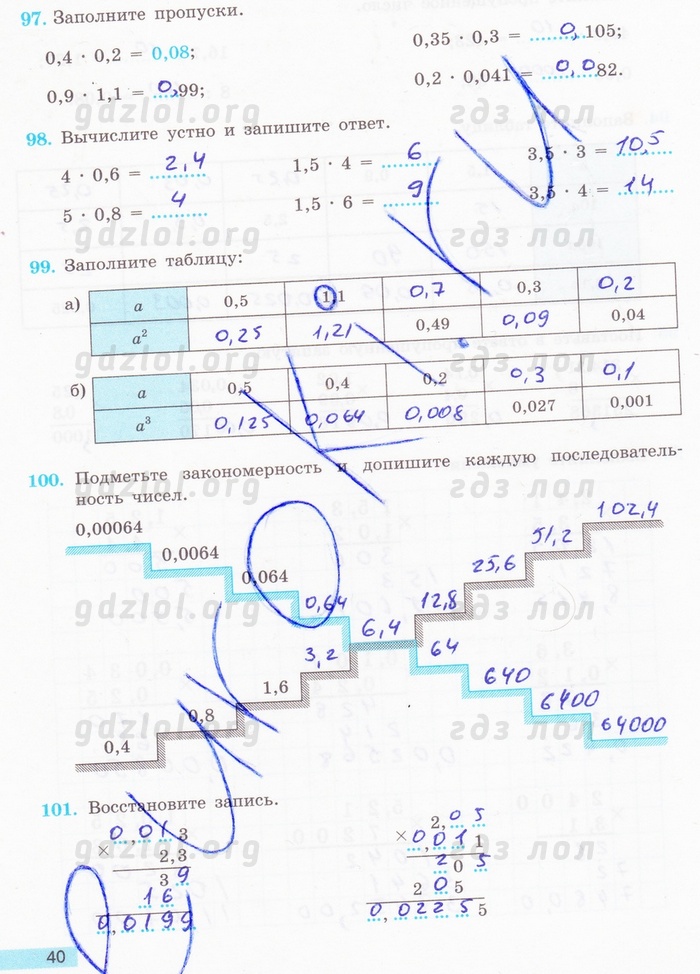 97. Заполните пропуски.
0,4 · 0,2 = 0,08;
0,35 · 0,3 = 0,105;
0,9 · 1,1 = 0,99;
0,2 · 0,041 = 0,0082.
gdzlol.org гдз лол
98. Вычислите устно и запишите ответ.
4 · 0,6 = 2,4
1,5 · 4 = 6
3,5 · 3 = 10,5
5 · 0,8 = 4
1,5 · 6 = 9
3,5 · 4 = 14
gdzlol.org гдз лол
99. Заполните таблицу:
а) a 0,5 1,1 0,7 0,3 0,2
a² 0,25 1,21 0,49 0,09 0,04
gdzlol.org гдз лол
б) a 0,5 0,4 0,2 0,3 0,1
a³ 0,125 0,064 0,008 0,027 0,001
100. Подметьте закономерность и допишите каждую последователь-
ность чисел.
gdzlol.org гдз лол
0,00064 0,0064 0,064 0,64 6,4 64 640 6400 64000
0,4 0,8 1,6 3,2 12,8 25,6 51,2 102,4
gdzlol.org гдз лол
gdzlol.org гдз лол
101. Восстановите запись.
0,013
×
2,3
39
16
0,0199
2,05
×
0,011
205
205
0,022555
gdzlol.org гдз лол
40